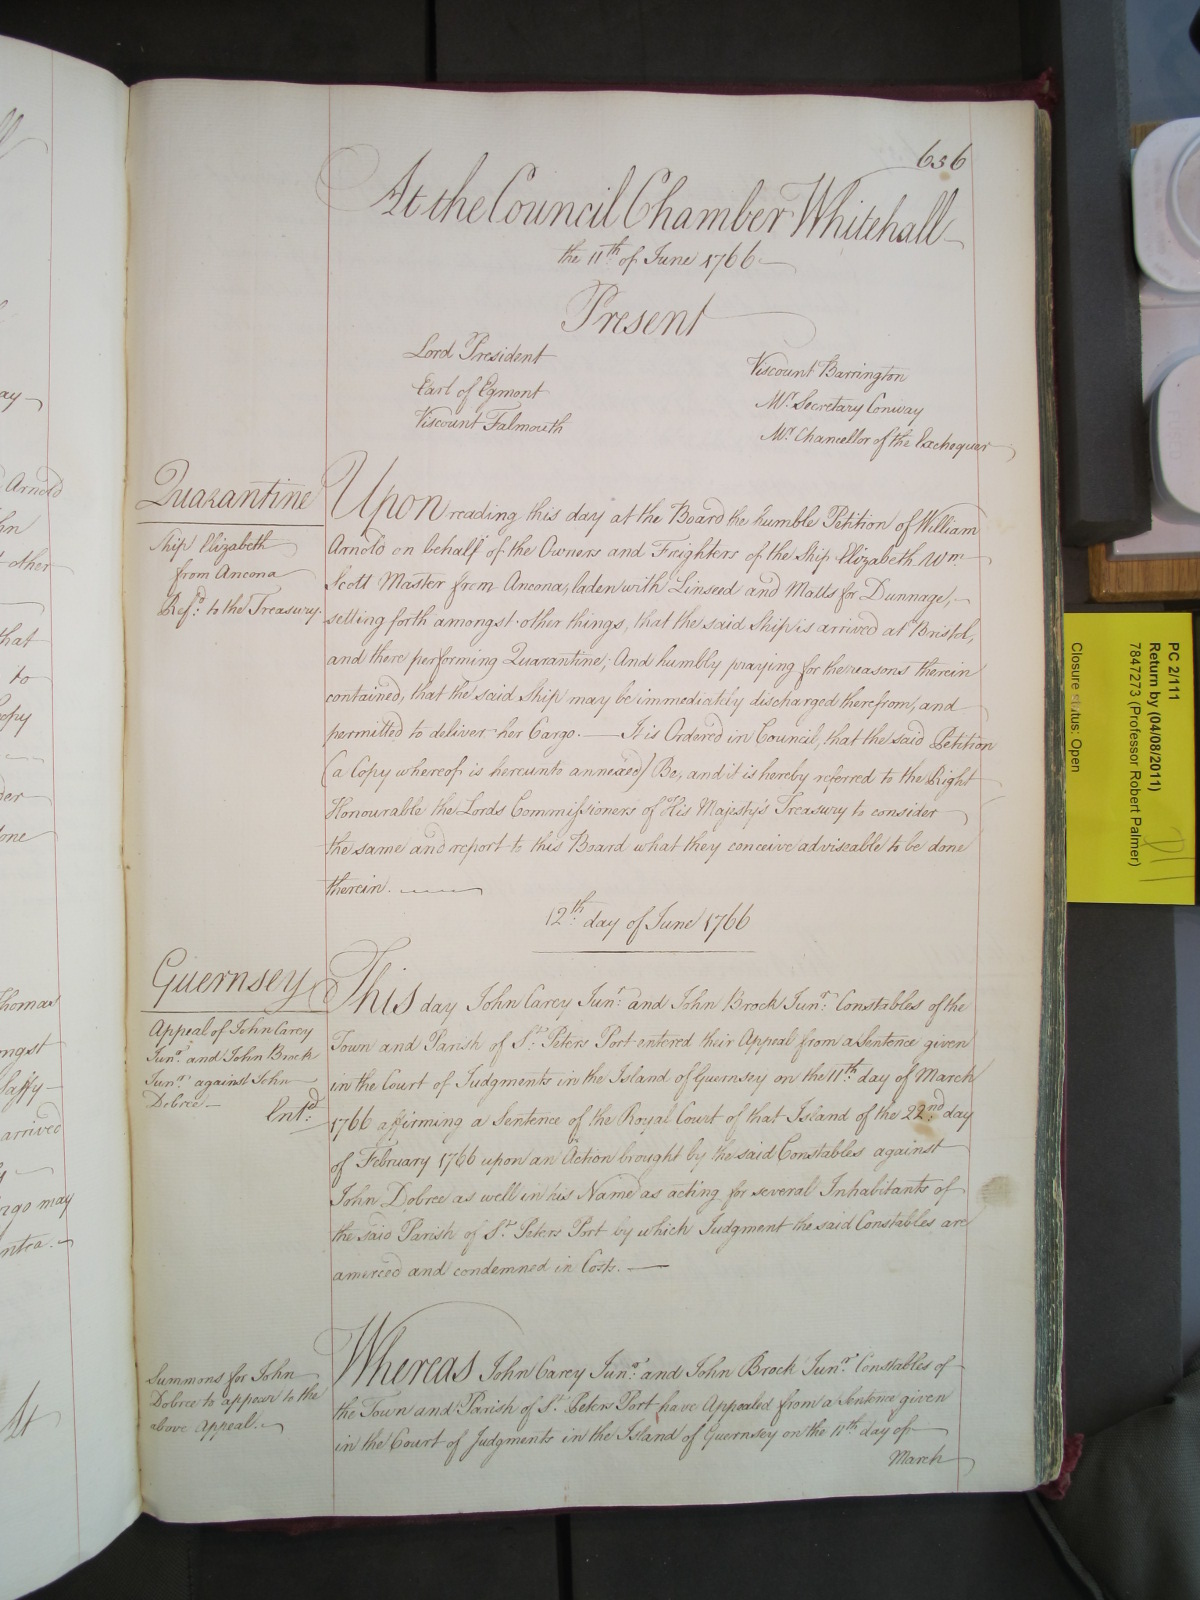 656
At the Council Chamber Whitehall
the 11th of June 1766
Present
Lord President
Earl of Egmont
Viscount Falmouth
Viscount Barrington
Mr. Secretary Conway
Mr. Chancellor of the Exchequer
Quarantine
Ship Elizabeth
from Ancona
Refd. to the Treasury.
Upon reading this day at the Board the humble Petition of William
Arnold on behalf of the Owners and Freighters of the Ship Elizabeth Wm.
Scott Master from Ancona, laden with Linseed and Matts for Dunnage,
setting forth amongst other things, that the said Ship is arrived at Bristol,
and there performing Quarantine; And humbly praying for the reasons therein
contained, that the said Ship may be immediately discharged therefrom, and
permitted to deliver her Cargo. — It is Ordered in Council, that the said Petition
(a Copy whereof is hereunto annexed) Be, and it is hereby referred to the Right
Honourable the Lords Commissioners of His Majesty's Treasury to consider
the same and report to this Board what they conceive adviseable to be done
therein.
12th. day of June 1766
Guernsey
Appeal of John Carey
Junr. and John Brock
Junr. against John
Dobree —
Entd.
This day John Carey Junr. and John Brock Junr. Constables of the
Town and Parish of St. Peters Port entered their Appeal from a Sentence given
in the Court of Judgments in the Island of Guernsey on the 11th. day of March
1766 affirming a Sentence of the Royal Court of that Island of the 22nd. day
of February 1766 upon an Action brought by the said Constables against
John Dobree as well in his Name as acting for several Inhabitants of
the said Parish of St. Peters Port by which Judgment the said Constables are
amerced and condemned in Costs. —
Summons for John
Dobree to appear to the
above Appeal.
Whereas John Carey Junr. and John Brock Junr. Constables of
the Town and Parish of St. Peters Port have Appealed from a Sentence given
in the Court of Judgments in the Island of Guernsey on the 11th. day of
March
PC 2/111
Return by (04/08/2011)
7847273 (Professor Robert Palmer)
Closure status: Open
ay
Arnold
other
that
to
Copy
der
done
Thomas
mongst
arrived
rgo may
ntra.
At